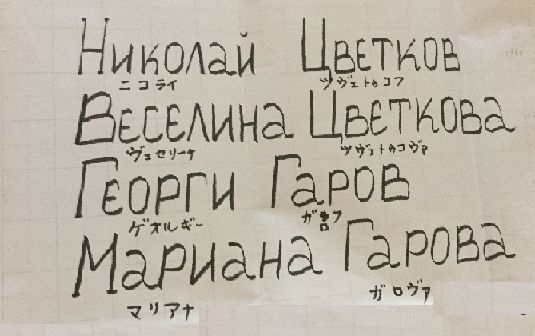 Николай Цветков
ニコライ ツヴェトゥコフ
Веселина Цветкова
ヴェセリーナ ツヴェトゥコヴァ
Георги Гаров
ゲオルギー ガロフ
Мариана Гарова
マリアナ ガロヴァ